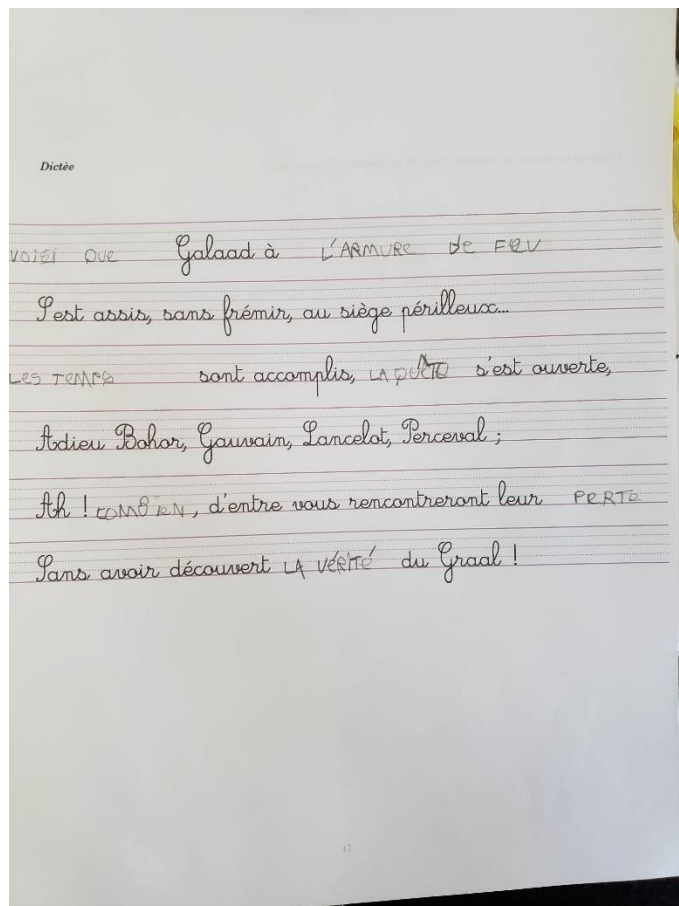 Dictée
VOICI QUE Galaad à L'ARMURE de FEU
S'est assis, sans frémir, au siège périlleux...
LES TEMPS sont accomplis, LA QUÊTE s'est ouverte,
Adieu Bohor, Gauvain, Lancelot, Perceval ;
Ah ! COMBIEN, d'entre vous rencontreront leur PERTE
Sans avoir découvert LA VÉRITÉ du Graal !
47